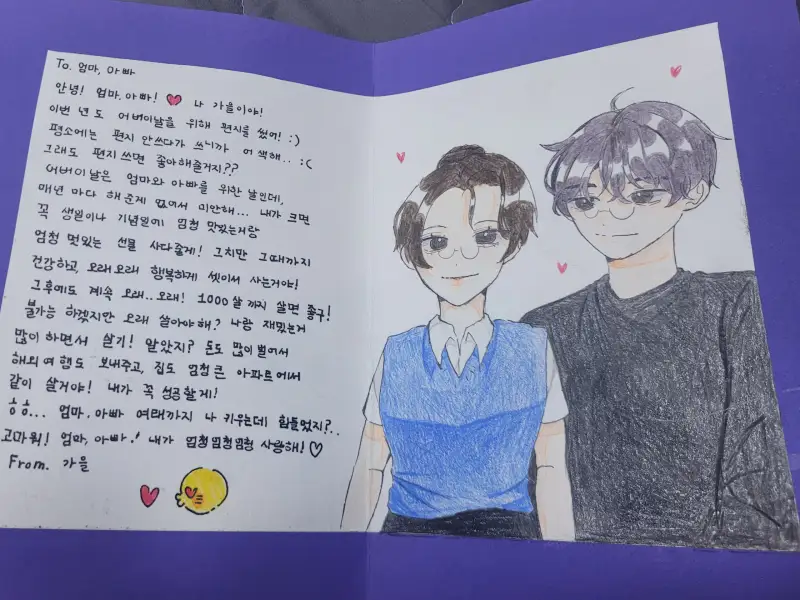 To. 엄마, 아빠
안녕! 엄마, 아빠! ♥ 나 가을이야!
이번 년도 어버이날을 위해 편지를 썼어! :)
평소에는 편지 안쓰다가 쓰니까 어색해.. :(
그래도 편지 쓰면 좋아해줄거지??
어버이날은 엄마와 아빠를 위한 날인데,
매년 마다 해준게 없어서 미안해... 내가 크면
꼭 생일이나 기념일에 엄청 맛있는거랑
엄청 멋있는 선물 사다줄게! 그치만 그때까지
건강하고, 오래오래 행복하게 셋이서 사는거야!
그후에도 계속 오래..오래! 1000살 까지 살면 좋구!
불가능 하겠지만 오래 살아야해? 나랑 재밌는거
많이 하면서 살기! 알았지? 돈도 많이 벌어서
해외 여행도 보내주고, 집도 엄청 큰 아파트에서
같이 살거야! 내가 꼭 성공할게!
흥흥... 엄마, 아빠 여태까지 나 키우는데 힘들었지?..
고마워! 엄마, 아빠! 내가 엄청엄청엄청 사랑해! ♡
From. 가을